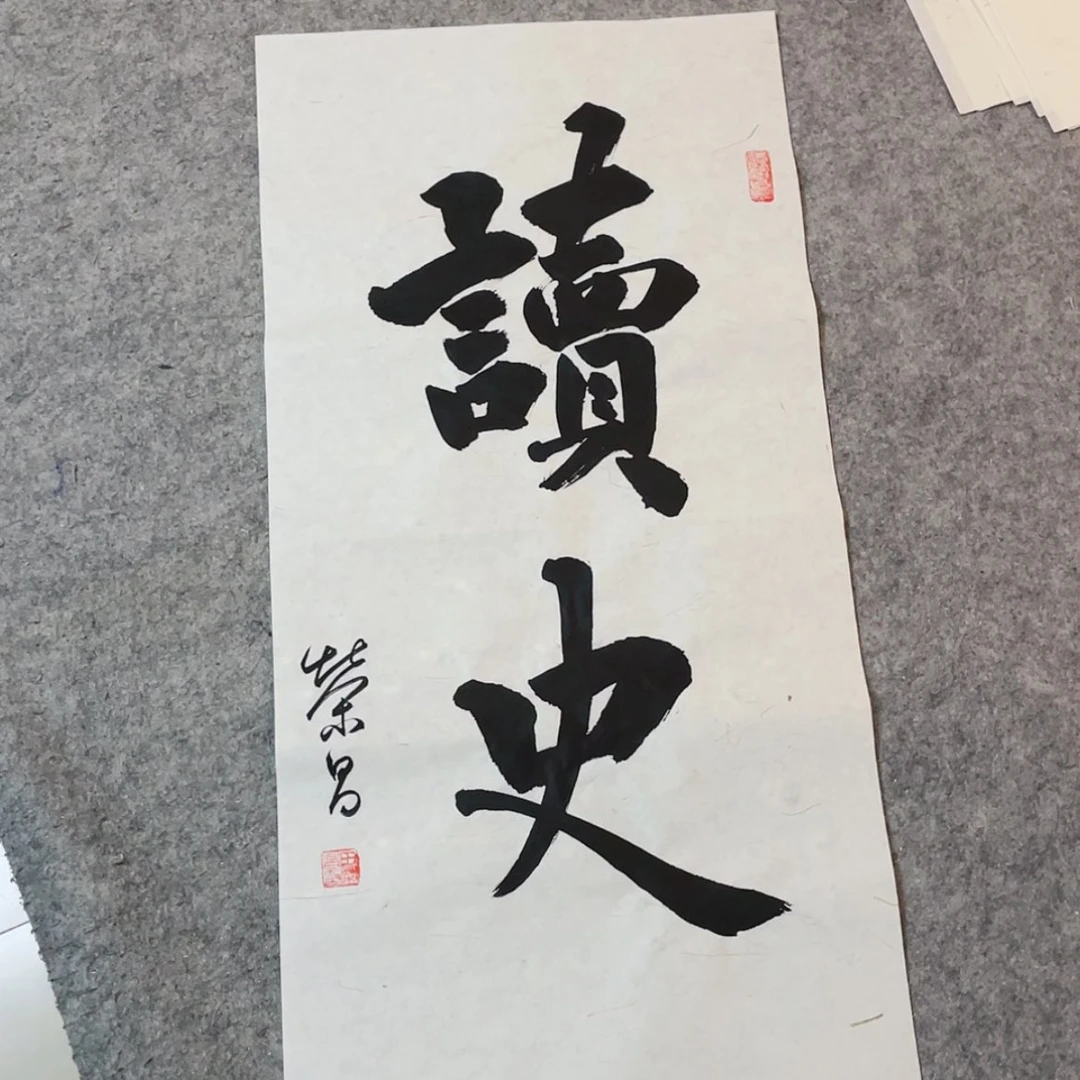 讀史
榮昌